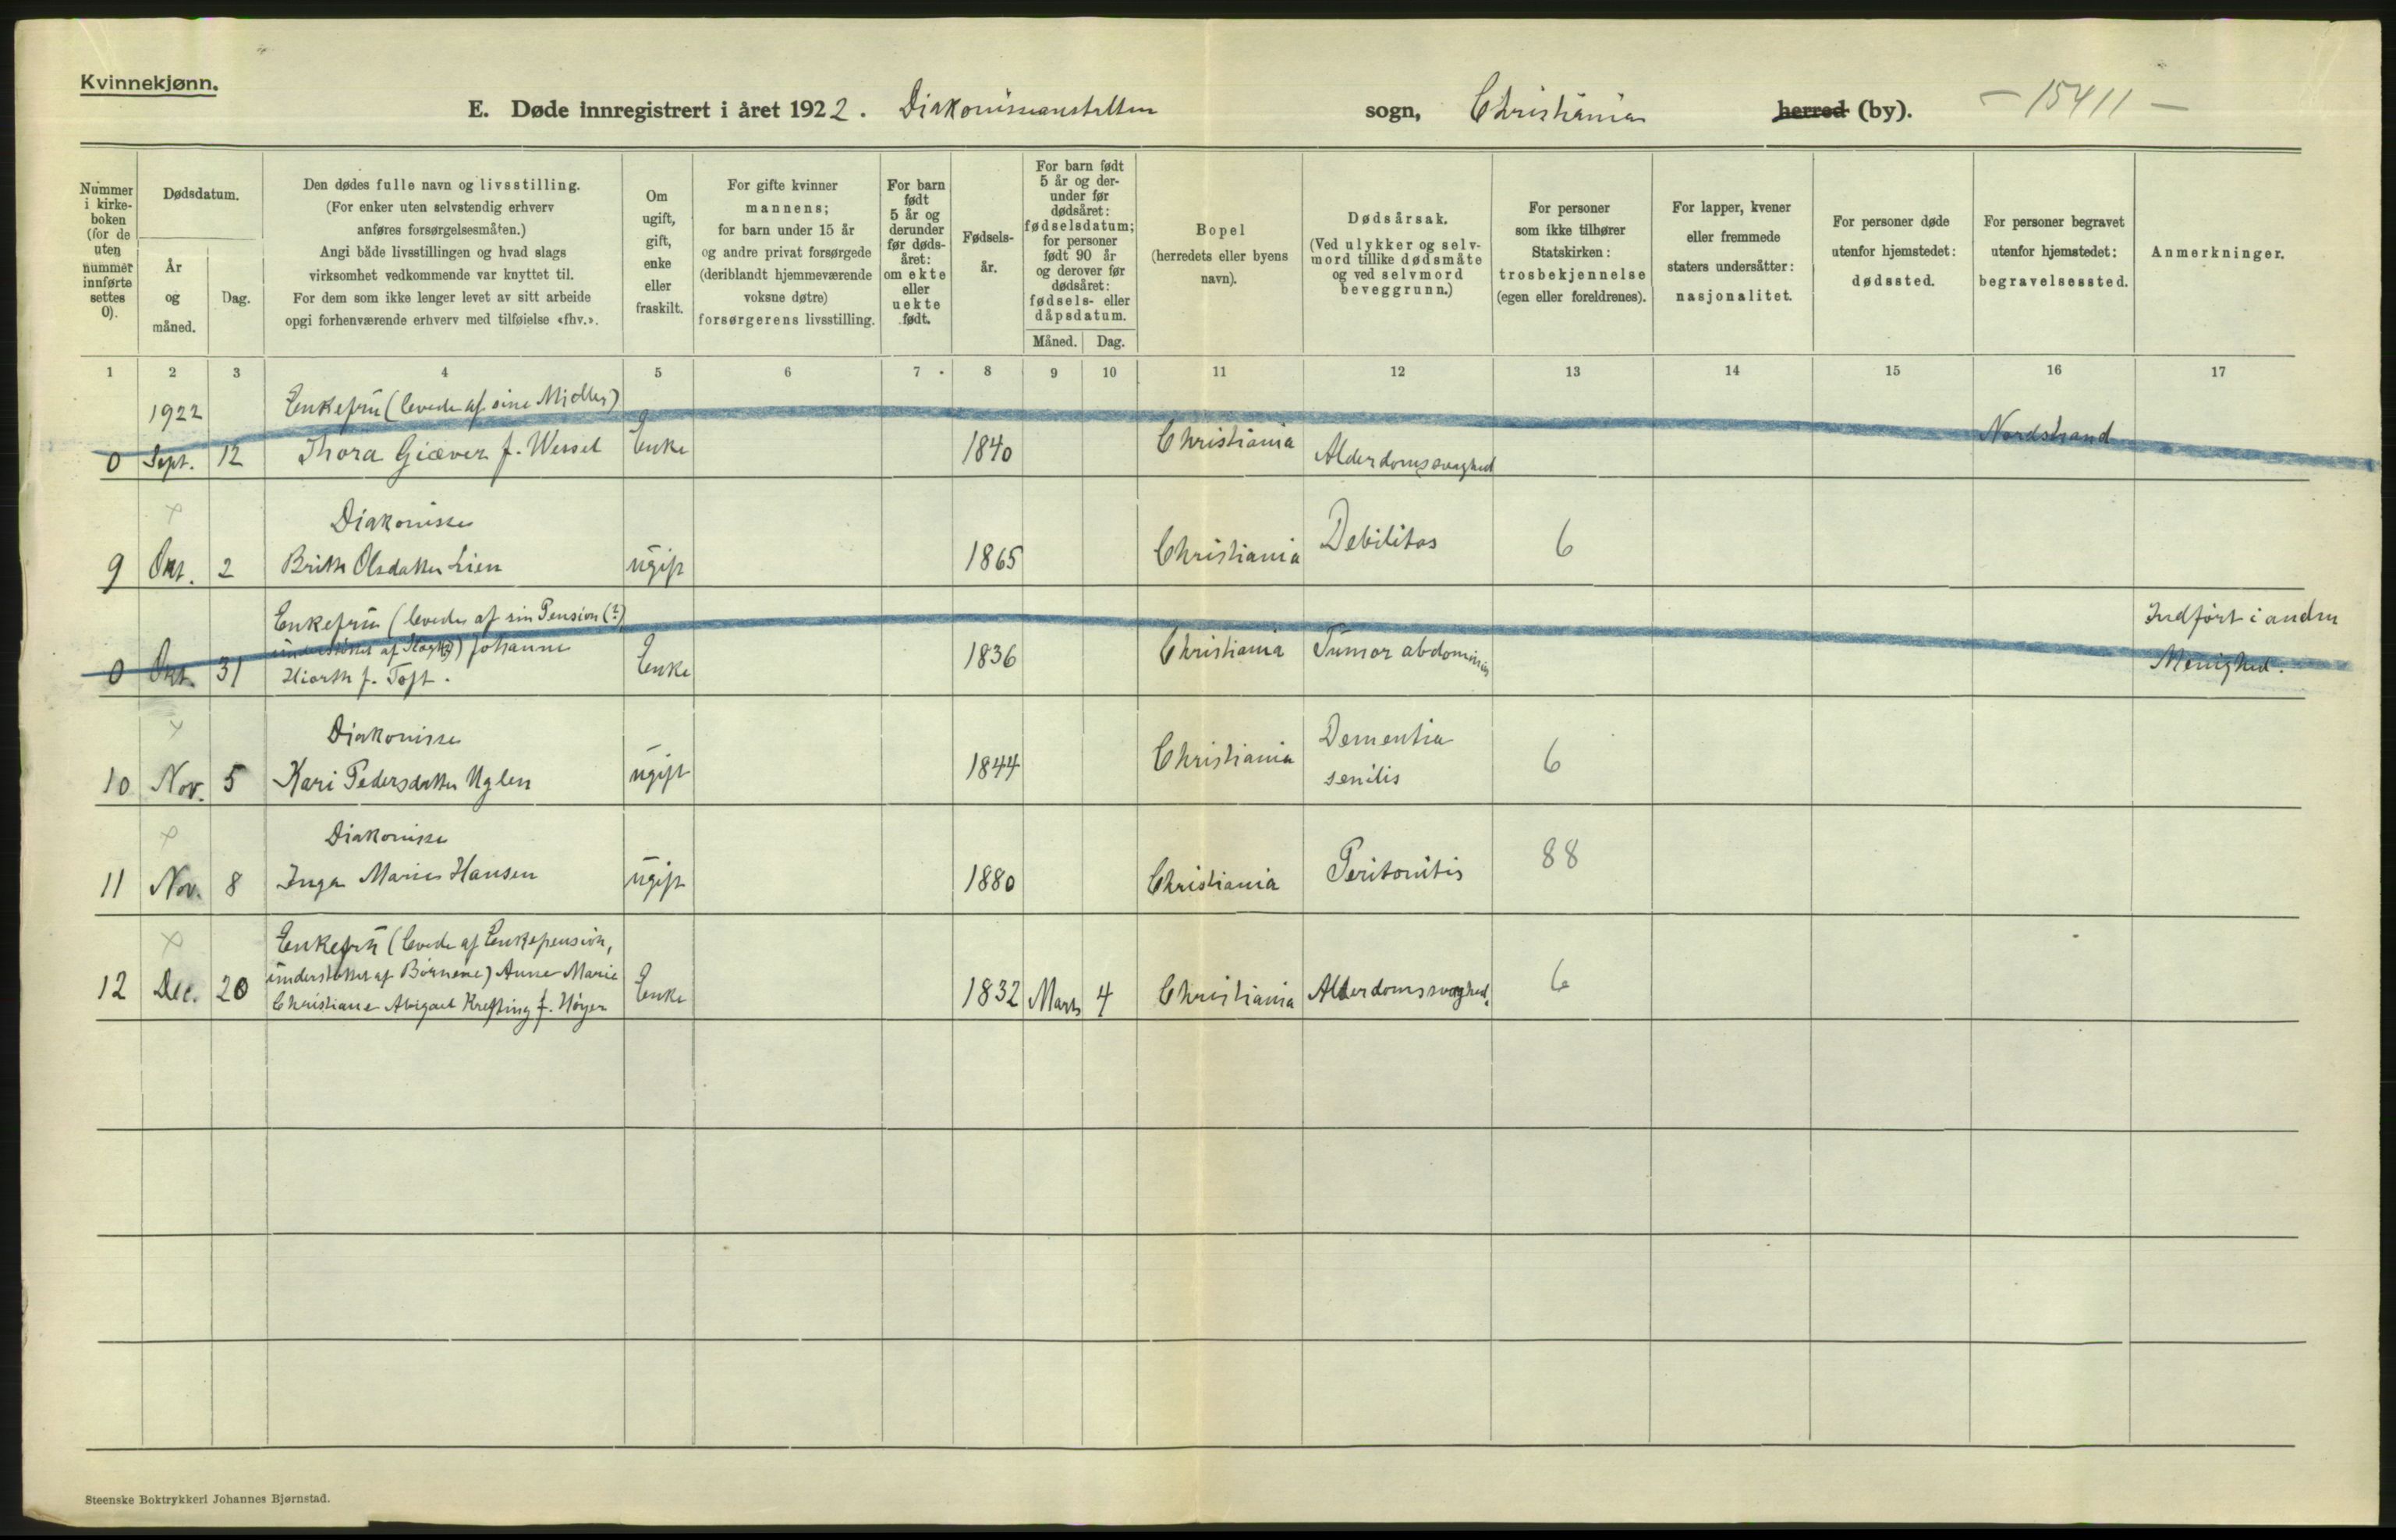 Kvinnekjønn.
E. Døde innregistrert i året 1922. Diakonisseanstalten sogn, Christiania herred (by). – 15411 –
Nummer i kirke-boken (for de uten nummer innførte settes 0).
Dødsdatum.
År og måned.
Dag.
Den dødes fulle navn og livsstilling.
(For enker uten selvstendig erhverv
anføres forsørgelsesmåten.)
Angi både livsstillingen og hvad slags
virksomhet vedkommende var knyttet til.
For dem som ikke lenger levet av sitt arbeide
opgi forhenværende erhverv med tilføielse «fhv.».
Om
ugift,
gift,
enke
eller
fraskilt.
For gifte kvinner
mannens;
for barn under 15 år
og andre privat forsørgede
(deriblandt hjemmeværende
voksne døtre)
forsørgerens livsstilling.
For barn
født
5 år og
derunder
før døds-
året:
om ekte
eller
uekte
født.
Fødsels-
år.
For barn født
5 år og der-
under før
dødsåret:
fødselsdatum;
for personer
født 90 år
og derover før
dødsåret:
fødsels- eller
dåpsdatum.
Måned. Dag.
Bopel
(herredets eller byens
navn).
Dødsårsak.
(Ved ulykker og selv-
mord tillike dødsmåte
og ved selvmord
beveggrunn.)
For personer
som ikke tilhører
Statskirken:
trosbekjennelse
(egen eller foreldrenes).
For lapper, kvener
eller fremmede
staters undersåtter:
nasjonalitet.
For personer døde
utenfor hjemstedet:
dødssted.
For personer begravet
utenfor hjemstedet:
begravelsessted.
Anmerkninger.
1 2 3 4 5 6 7 8 9 10 11 12 13 14 15 16 17
1922 Enkefru (levede af sine Midler)
0 Sept. 12 Thora Giæver f. Wessel Enke 1840 Christiania Alderdomssvaghed Nordstrand
Diakonisse
9 Okt. 2 Brithe Olsdatter Lien ugift 1865 Christiania Debilitas 6
Enkefru (levede af sin Pension (?)
understøttet af Slægt?) Johanne
0 Okt. 31 Hiorth f. Toft. Enke 1836 Christiania Tumor abdominis Indført i anden
Menighed.
Diakonisse
10 Nov. 5 Kari Pedersdatter Uglen ugift 1844 Christiania Dementia
senilis 6
Diakonisse
11 Nov. 8 Inga Marie Hansen ugift 1880 Christiania Peritonitis 88
Enkefru (levede af Enkepension,
understøttet af Børnene) Anne Marie
12 Dec. 20 Christiane Abigael Krefting f. Høyer Enke 1832 Marts 4 Christiania Alderdomssvaghed. 6
Steenske Boktrykkeri Johannes Bjørnstad.